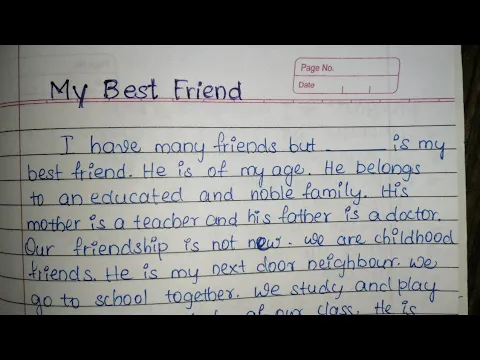 Page No.
Date
My Best Friend
I have many friends but ______ is my
best friend. He is of my age. He belongs
to an educated and noble family. His
mother is a teacher and his father is a doctor.
Our friendship is not new. We are childhood
friends. He is my next door neighbour. We
go to school together. We study and play
of our class. He is